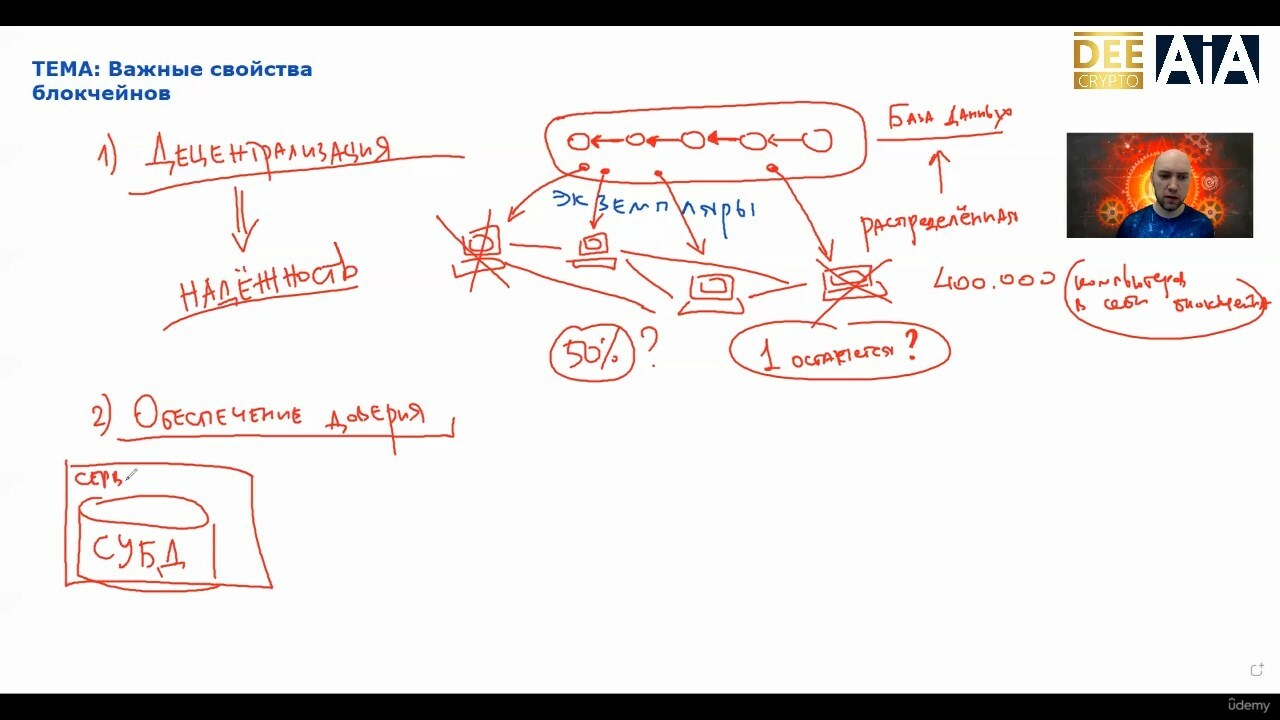 ТЕМА: Важные свойства
блокчейнов
DEE
CRYPTO
AiA
1) Децентрализация
База данных
экземпляры
распределённая
надёжность
400.000
компьютеров
в сети блокчейна
50% ?
1 остаётся ?
2) Обеспечение доверия
серв
СУБД
ûdemy